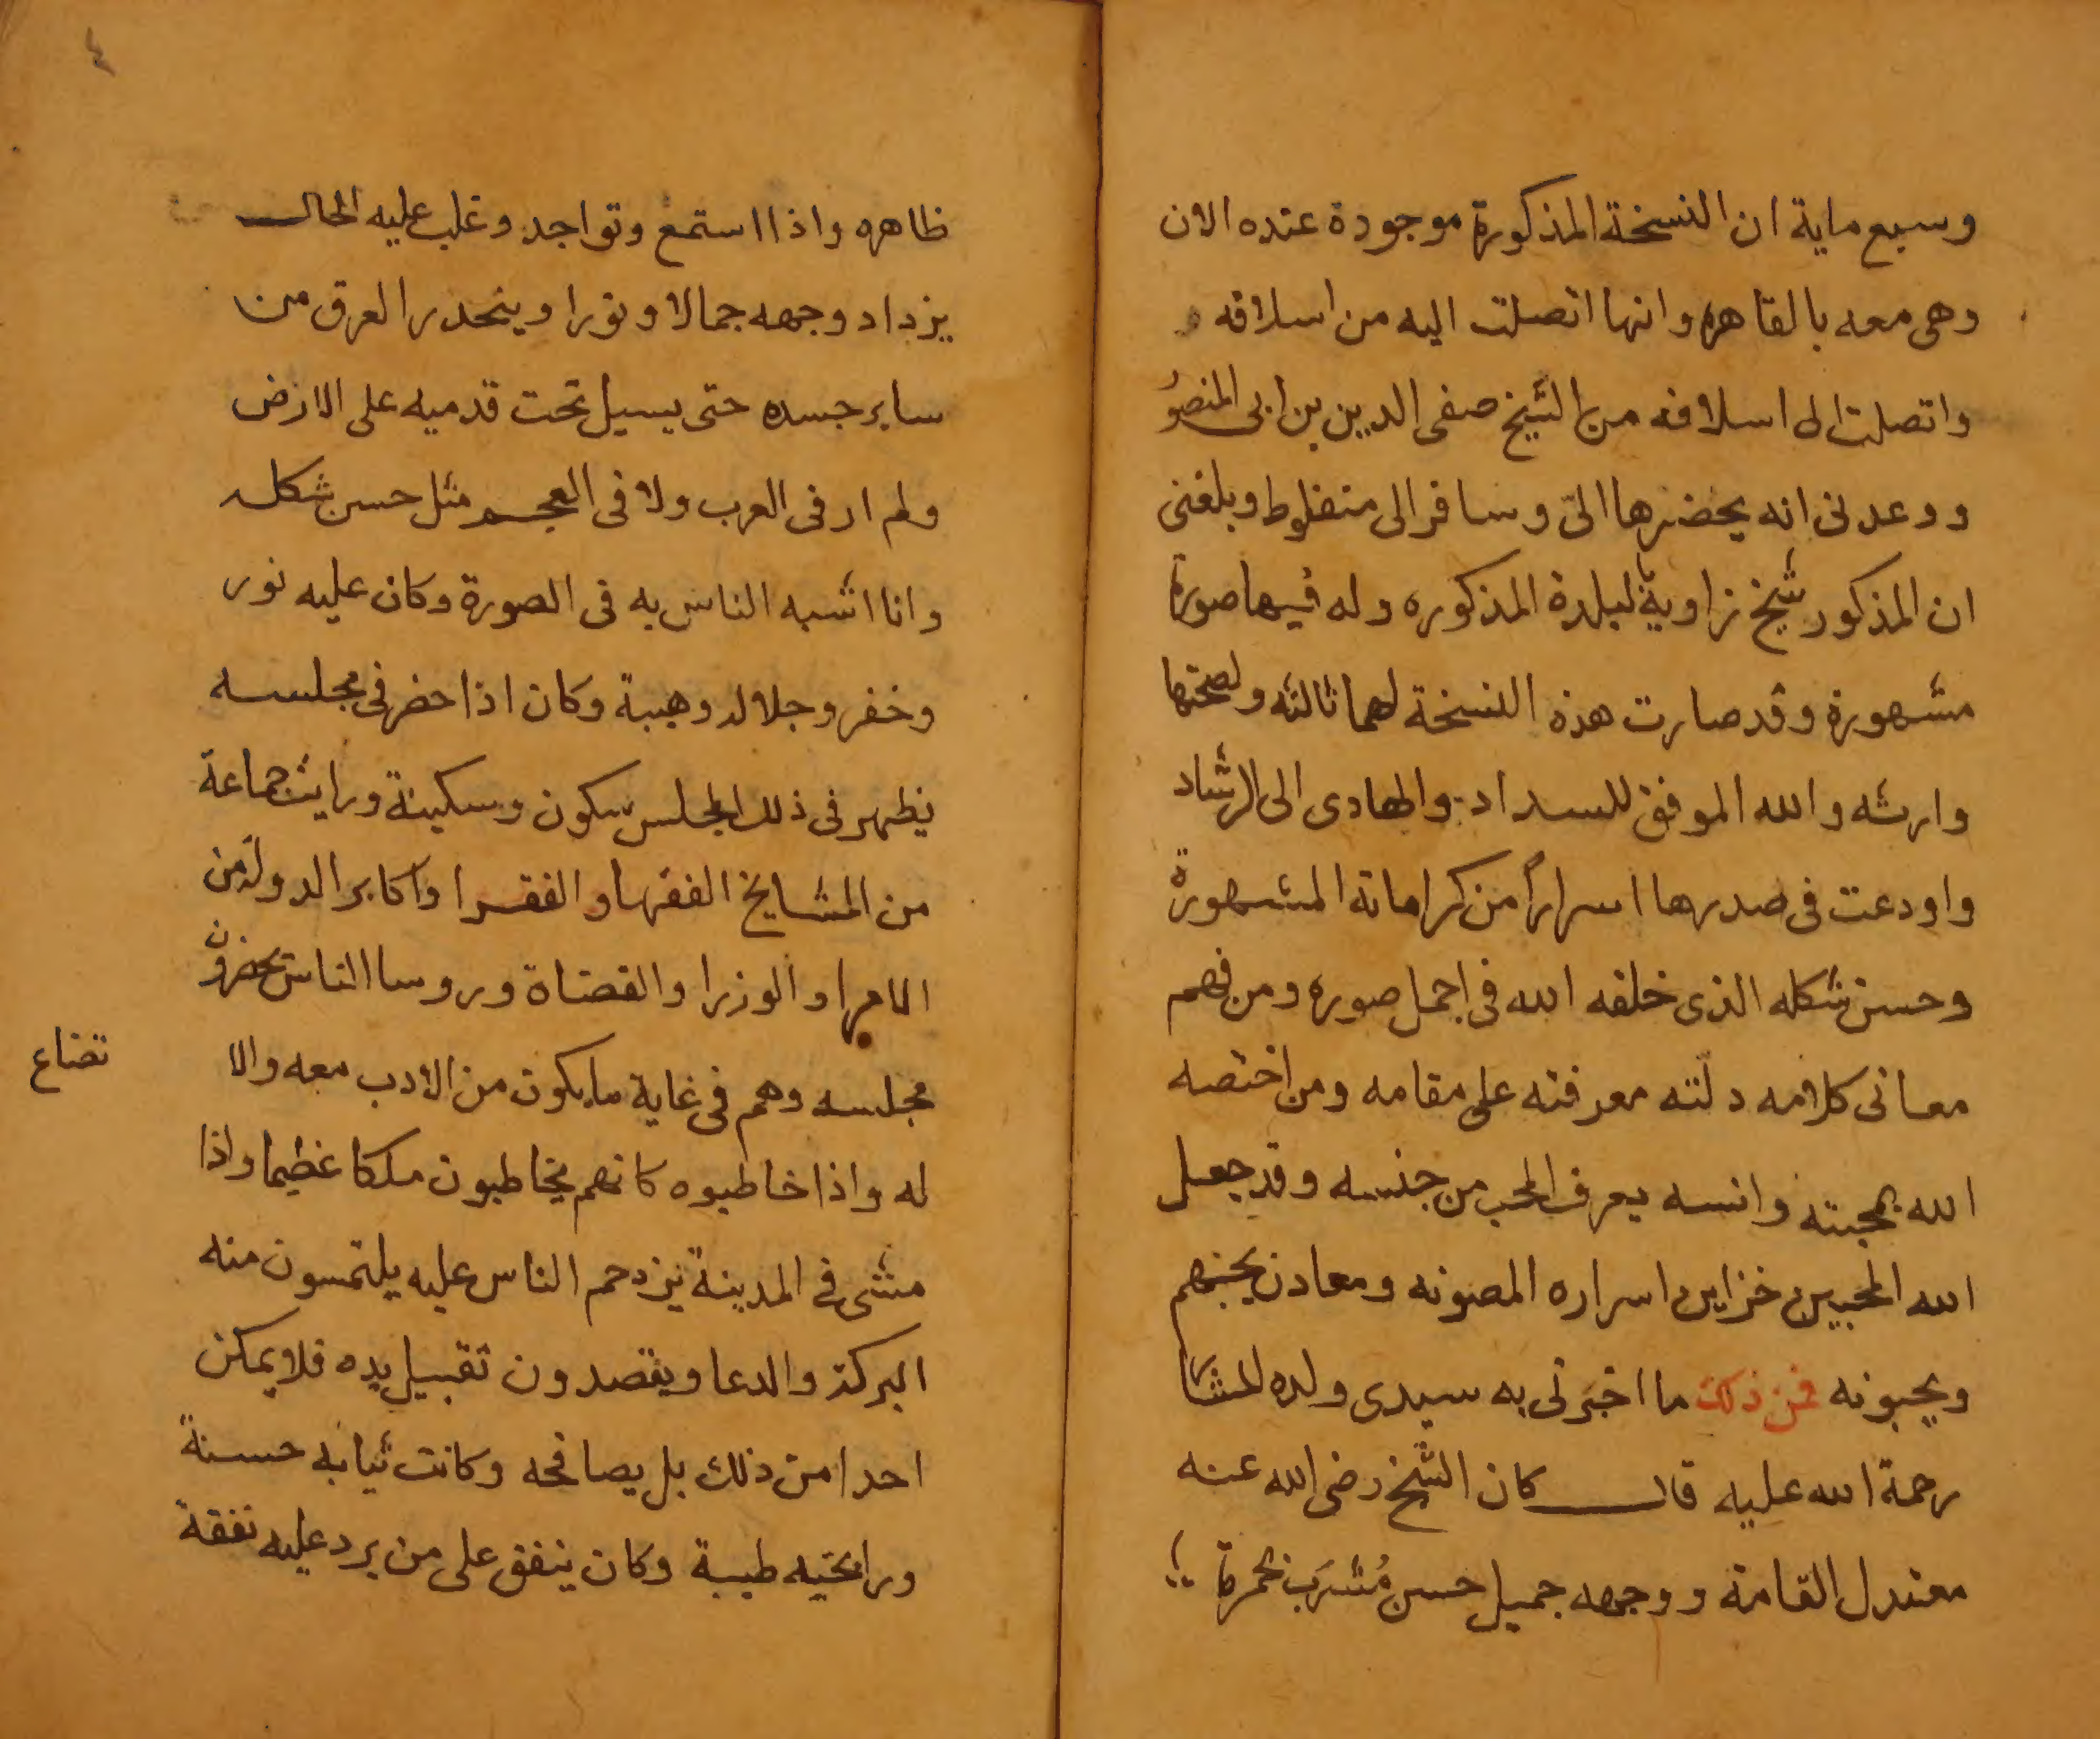 وسبع ماية ان النسخة المذكورة موجودة عنده الان
وهى معه بالقاهره وانها اتصلت اليه من اسلافه
واتصلت الى اسلافه من الشيخ صفى الدين بن ابى المنصور
ووعدنى انه يحضرها الىّ وسافر الى منفلوط وبلغنى
ان المذكور شيخ زاوية بالبلدة المذكوره وله فيها صورة
مشهورة وقد صارت هذه النسخة لهما ثالثه ولصحتها
وارثه والله الموفق للسداد والهادى الى الرشاد
واودعت فى صدرها اسراراً من كراماته المشهورة
وحسن شكله الذى خلقه الله فى اجمل صوره ومن فهم
معانى كلامه دلّته معرفته على مقامه ومن اختصه
الله بمحبته وانسه يعرف المحب من جنسه وقد جعل
الله المحبين خزاين اسراره المصونه ومعادن يحبهم
ويحبونه فمن ذلك ما اخبرنى به سيدى ولده
رحمة الله عليه قال كان الشيخ رضى الله عنه
معتدل القامة ووجهه جميل حسن مُشرَب بحمرة
٤
ظاهره واذا استمع وتواجد وغلب عليه الحال
يزداد وجهه جمالا ونورا وينحدر العرق من
ساير جسده حتى يسيل تحت قدميه على الارض
ولم ار فى العرب ولا فى العجم مثل حسن شكله
وانا اشبه الناس به فى الصورة وكان عليه نور
وخفر وجلاله وهيبة وكان اذا حضر فى مجلسه
يظهر فى ذلك المجلس سكون وسكينة ورايت جماعة
من المشايخ الفقها والفقرا واكابر الدولة من
الامرا والوزرا والقضاة وروسا الناس يحضرون
مجلسه وهم فى غاية ما يكون من الادب معه والا
تضاع
له واذا خاطبوه كانهم يخاطبون ملكا عظيما واذا
مشى فى المدينة يزدحم الناس عليه يلتمسون منه
البركة والدعا ويقصدون تقبيل يده فلا يمكن
احدا من ذلك بل يصافحه وكانت ثيابه حسنة
ورايحته طيبة وكان ينفق على من يرد عليه نفقة